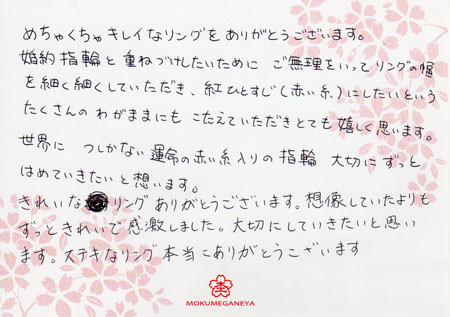 めちゃくちゃキレイなリングをありがとうございます。
婚約指輪と重ねづけしたいために ご無理をいってリングの幅
を細く細くしていただき、紅ひとすじ(赤い糸)にしたいという
たくさんの わがままにも こたえていただきとても嬉しく思います。
世界に 1つしかない運命の赤い糸入りの指輪 大切にずっと
はめていきたいと想います。
きれいな リング ありがとうございます。想像していたよりも
ずっときれいで感激しました。大切にしていきたいと思い
ます。ステキなリング本当にありがとうございます
MOKUMEGANEYA